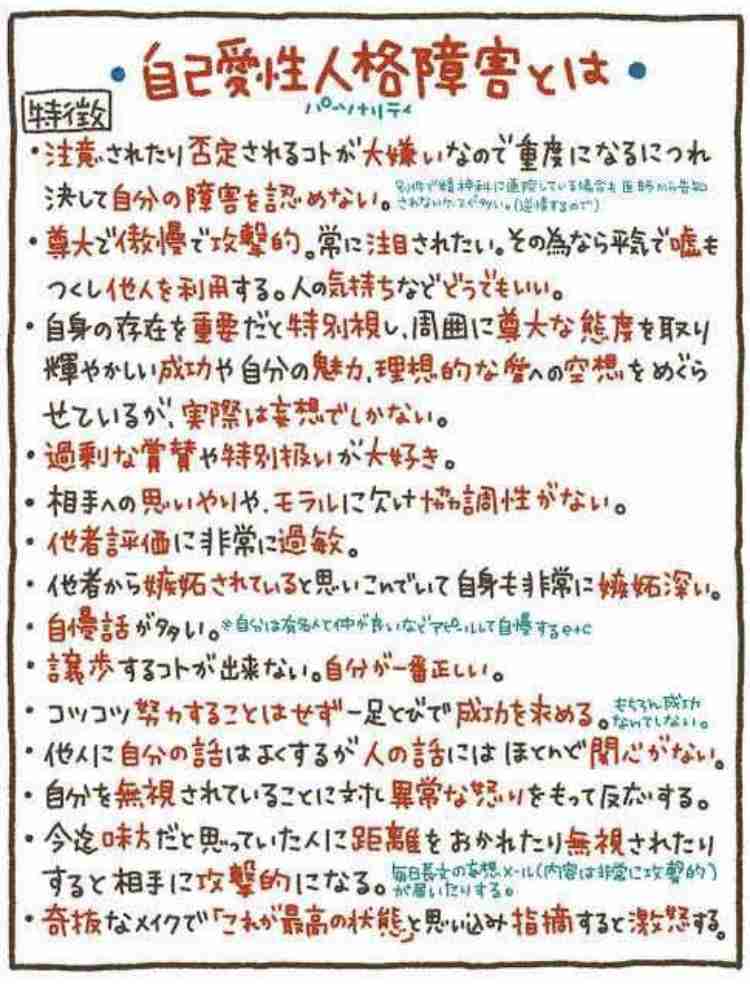 ・自己愛性人格障害とは・
パーソナリティ
特徴
・注意されたり否定されるコトが大嫌いなので重度になるにつれ
決して自分の障害を認めない。別件で精神科に通院している場合も医師から告知
されないケースが多い。(逆憎するので)
・尊大で傲慢で攻撃的。常に注目されたい。その為なら平気で嘘も
つくし他人を利用する。人の気持ちなどどうでもいい。
・自身の存在を重要だと特別視し、周囲に尊大な態度を取り
輝やかしい成功や自分の魅力、理想的な愛への空想をめぐら
せているが、実際は妄想でしかない。
・過剰な賞賛や特別扱いが大好き。
・相手への思いやりや、モラルに欠け協調性がない。
・他者評価に非常に過敏。
・他者から嫉妬されていると思いこんでいて自身も非常に嫉妬深い。
・自慢話が多い。※自分は有名人と仲が良いなどアピールして自慢するetc
・譲歩するコトが出来ない。自分が一番正しい。
・コツコツ努力することはせず一足とびで成功を求める。もちろん成功
なんてしない。
・他人に自分の話はよくするが人の話にはほとんど関心がない。
・自分を無視されていることに対し異常な怒りをもって反応する。
・今迄味方だと思っていた人に距離をおかれたり無視されたり
すると相手に攻撃的になる。毎日長文の妄想メール(内容は非常に攻撃的)
が届いたりする。
・奇抜なメイクで「これが最高の状態」と思い込み指摘すると激怒する。